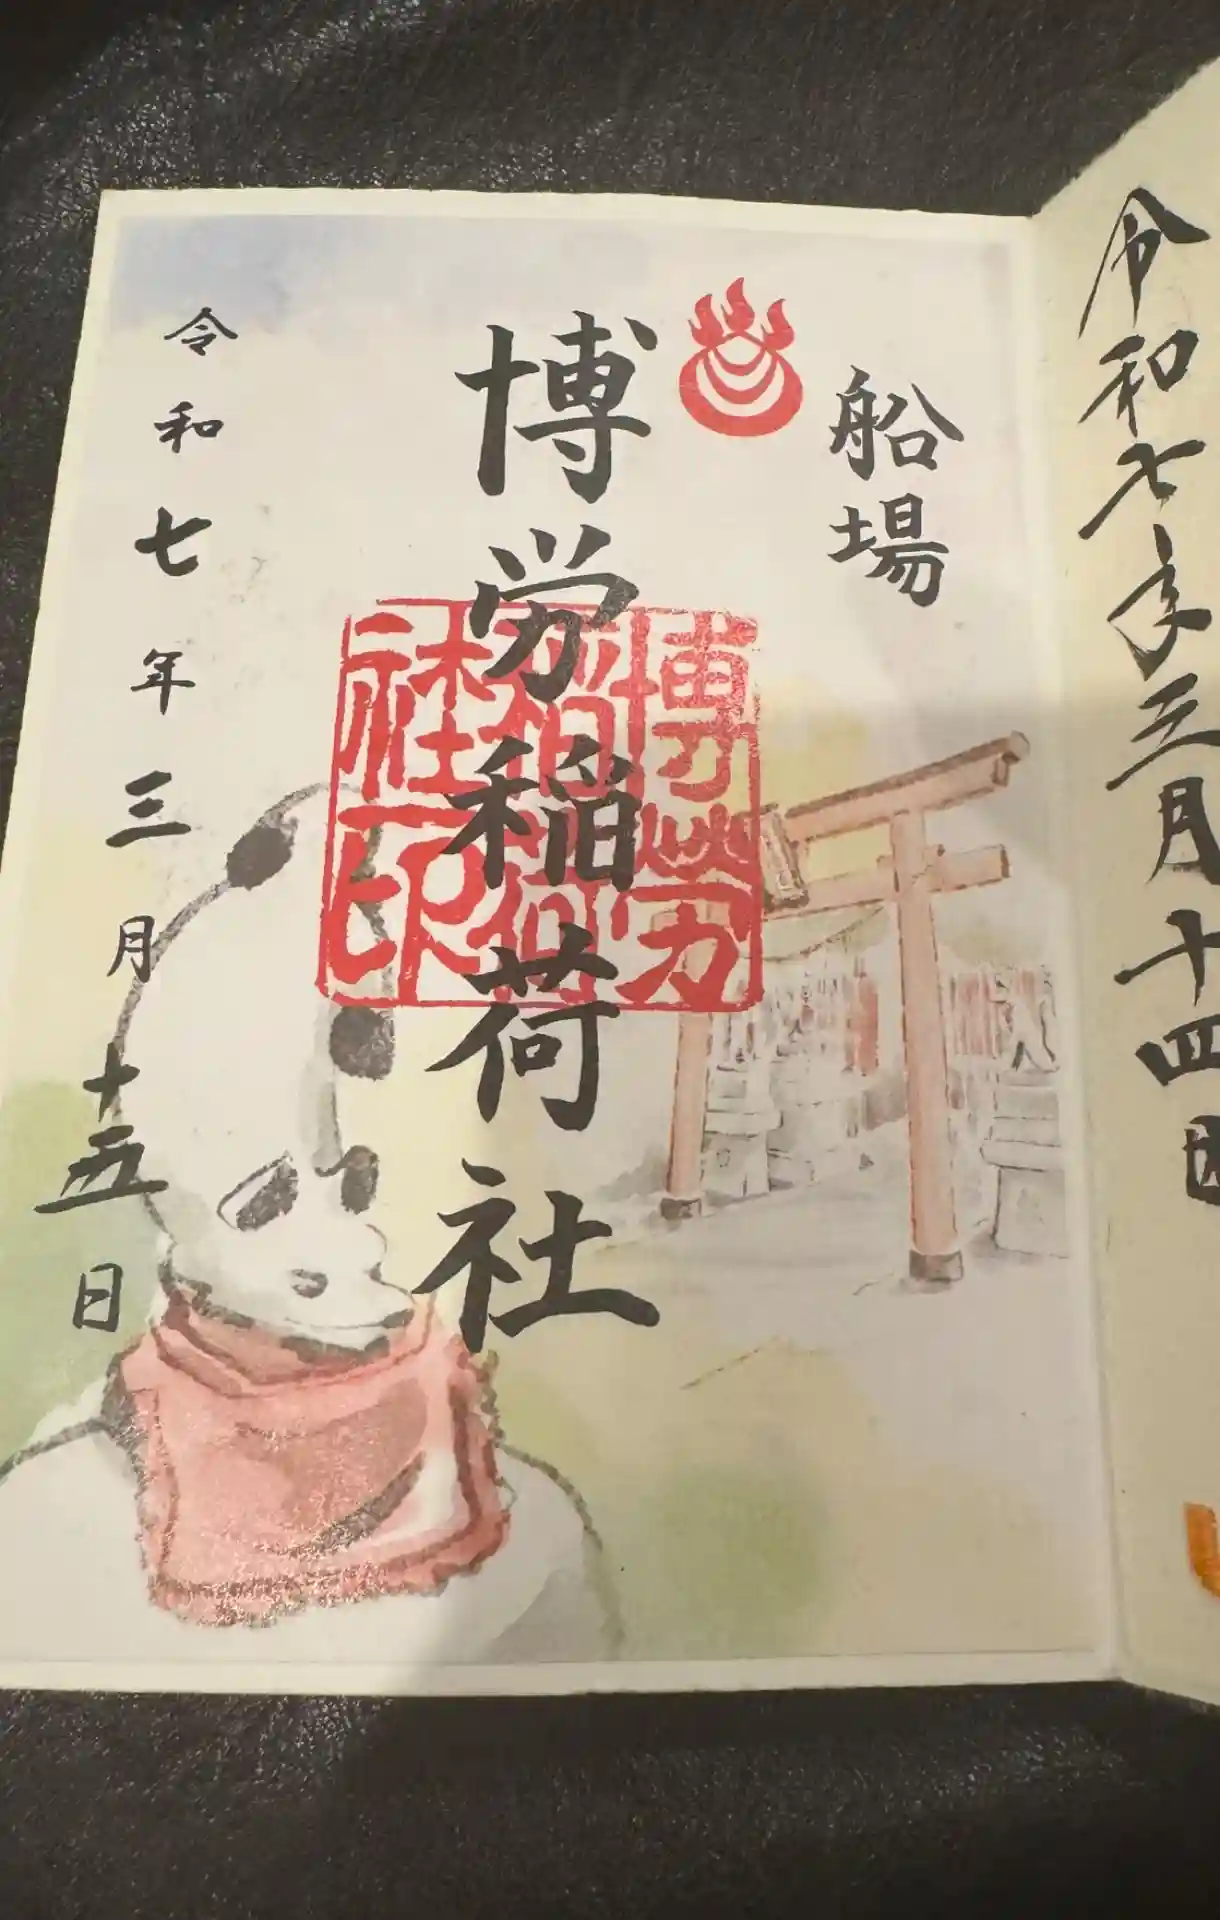 令和七年三月十四日
船場
博労稲荷社
博労
稲荷
社印
令和七年三月十五日